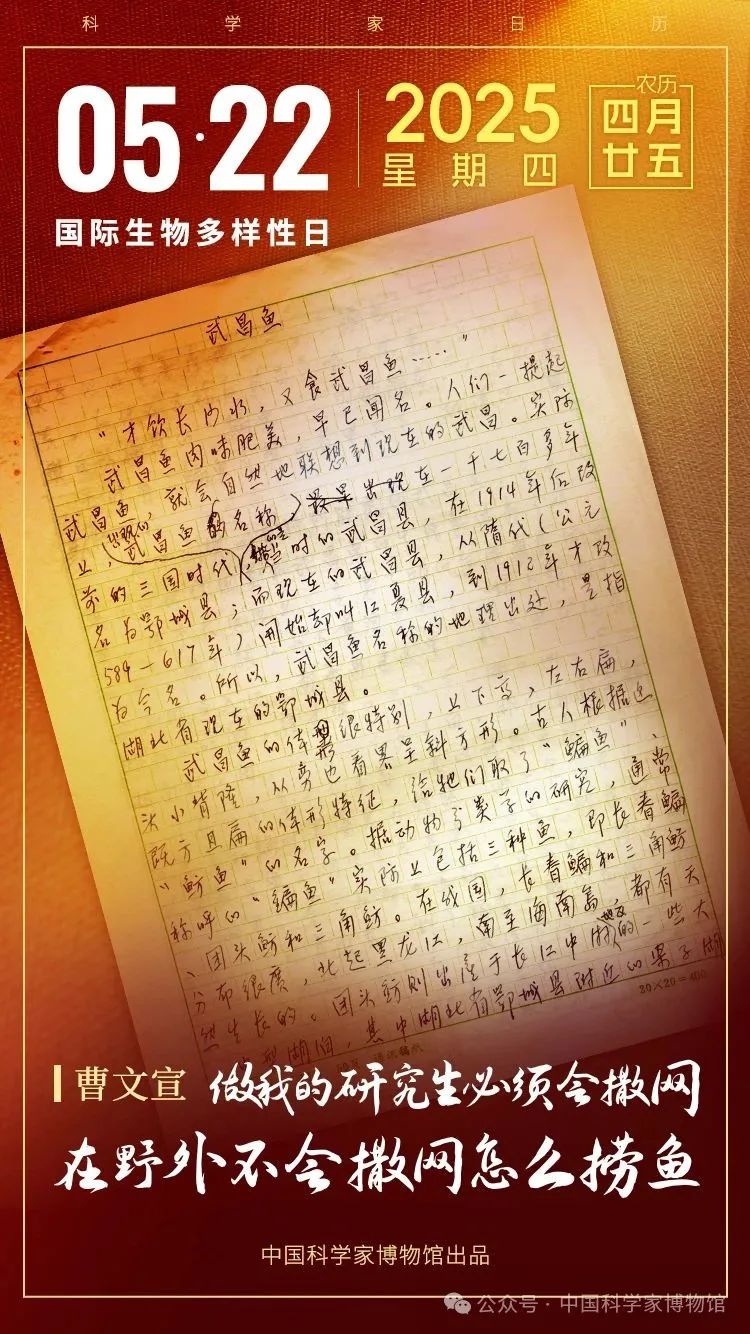 科学家日历
05·22
国际生物多样性日
2025
星期四
农历
四月
廿五
武昌鱼
“才饮长沙水，又食武昌鱼……”
武昌鱼肉味肥美，早已闻名。人们一提起
武昌鱼，就会自然地联想到现在的武昌。实际
上，武昌鱼的名称出现在一千七百多年
前的三国时代，当时的武昌县，在1914年后改
名为鄂城县；而现在的武昌县，从隋代（公元
589—617年）开始却叫江夏县，到1912年才改
为今名。所以，武昌鱼名称的地理出处，是指
湖北省现在的鄂城县。
武昌鱼的体形很特别，上下高，左右扁，
头小背隆，从旁边看略呈斜方形。古人根据这
既方且扁的体形特征，给牠们取了“鳊鱼”、
“鲂鱼”的名字。据动物分类学的研究，通常
称呼的“鳊鱼”实际上包括三种鱼，即长春鳊
、团头鲂和三角鲂。在我国，长春鳊和三角鲂
分布很广，北起黑龙江，南至海南岛，都有天
然生长的。团头鲂则出产于长江中游的一些大
型湖泊，其中湖北省鄂城县附近的梁子湖
20×20=400
曹文宣
做我的研究生必须会撒网
在野外不会撒网怎么捞鱼
中国科学家博物馆出品
公众号·中国科学家博物馆